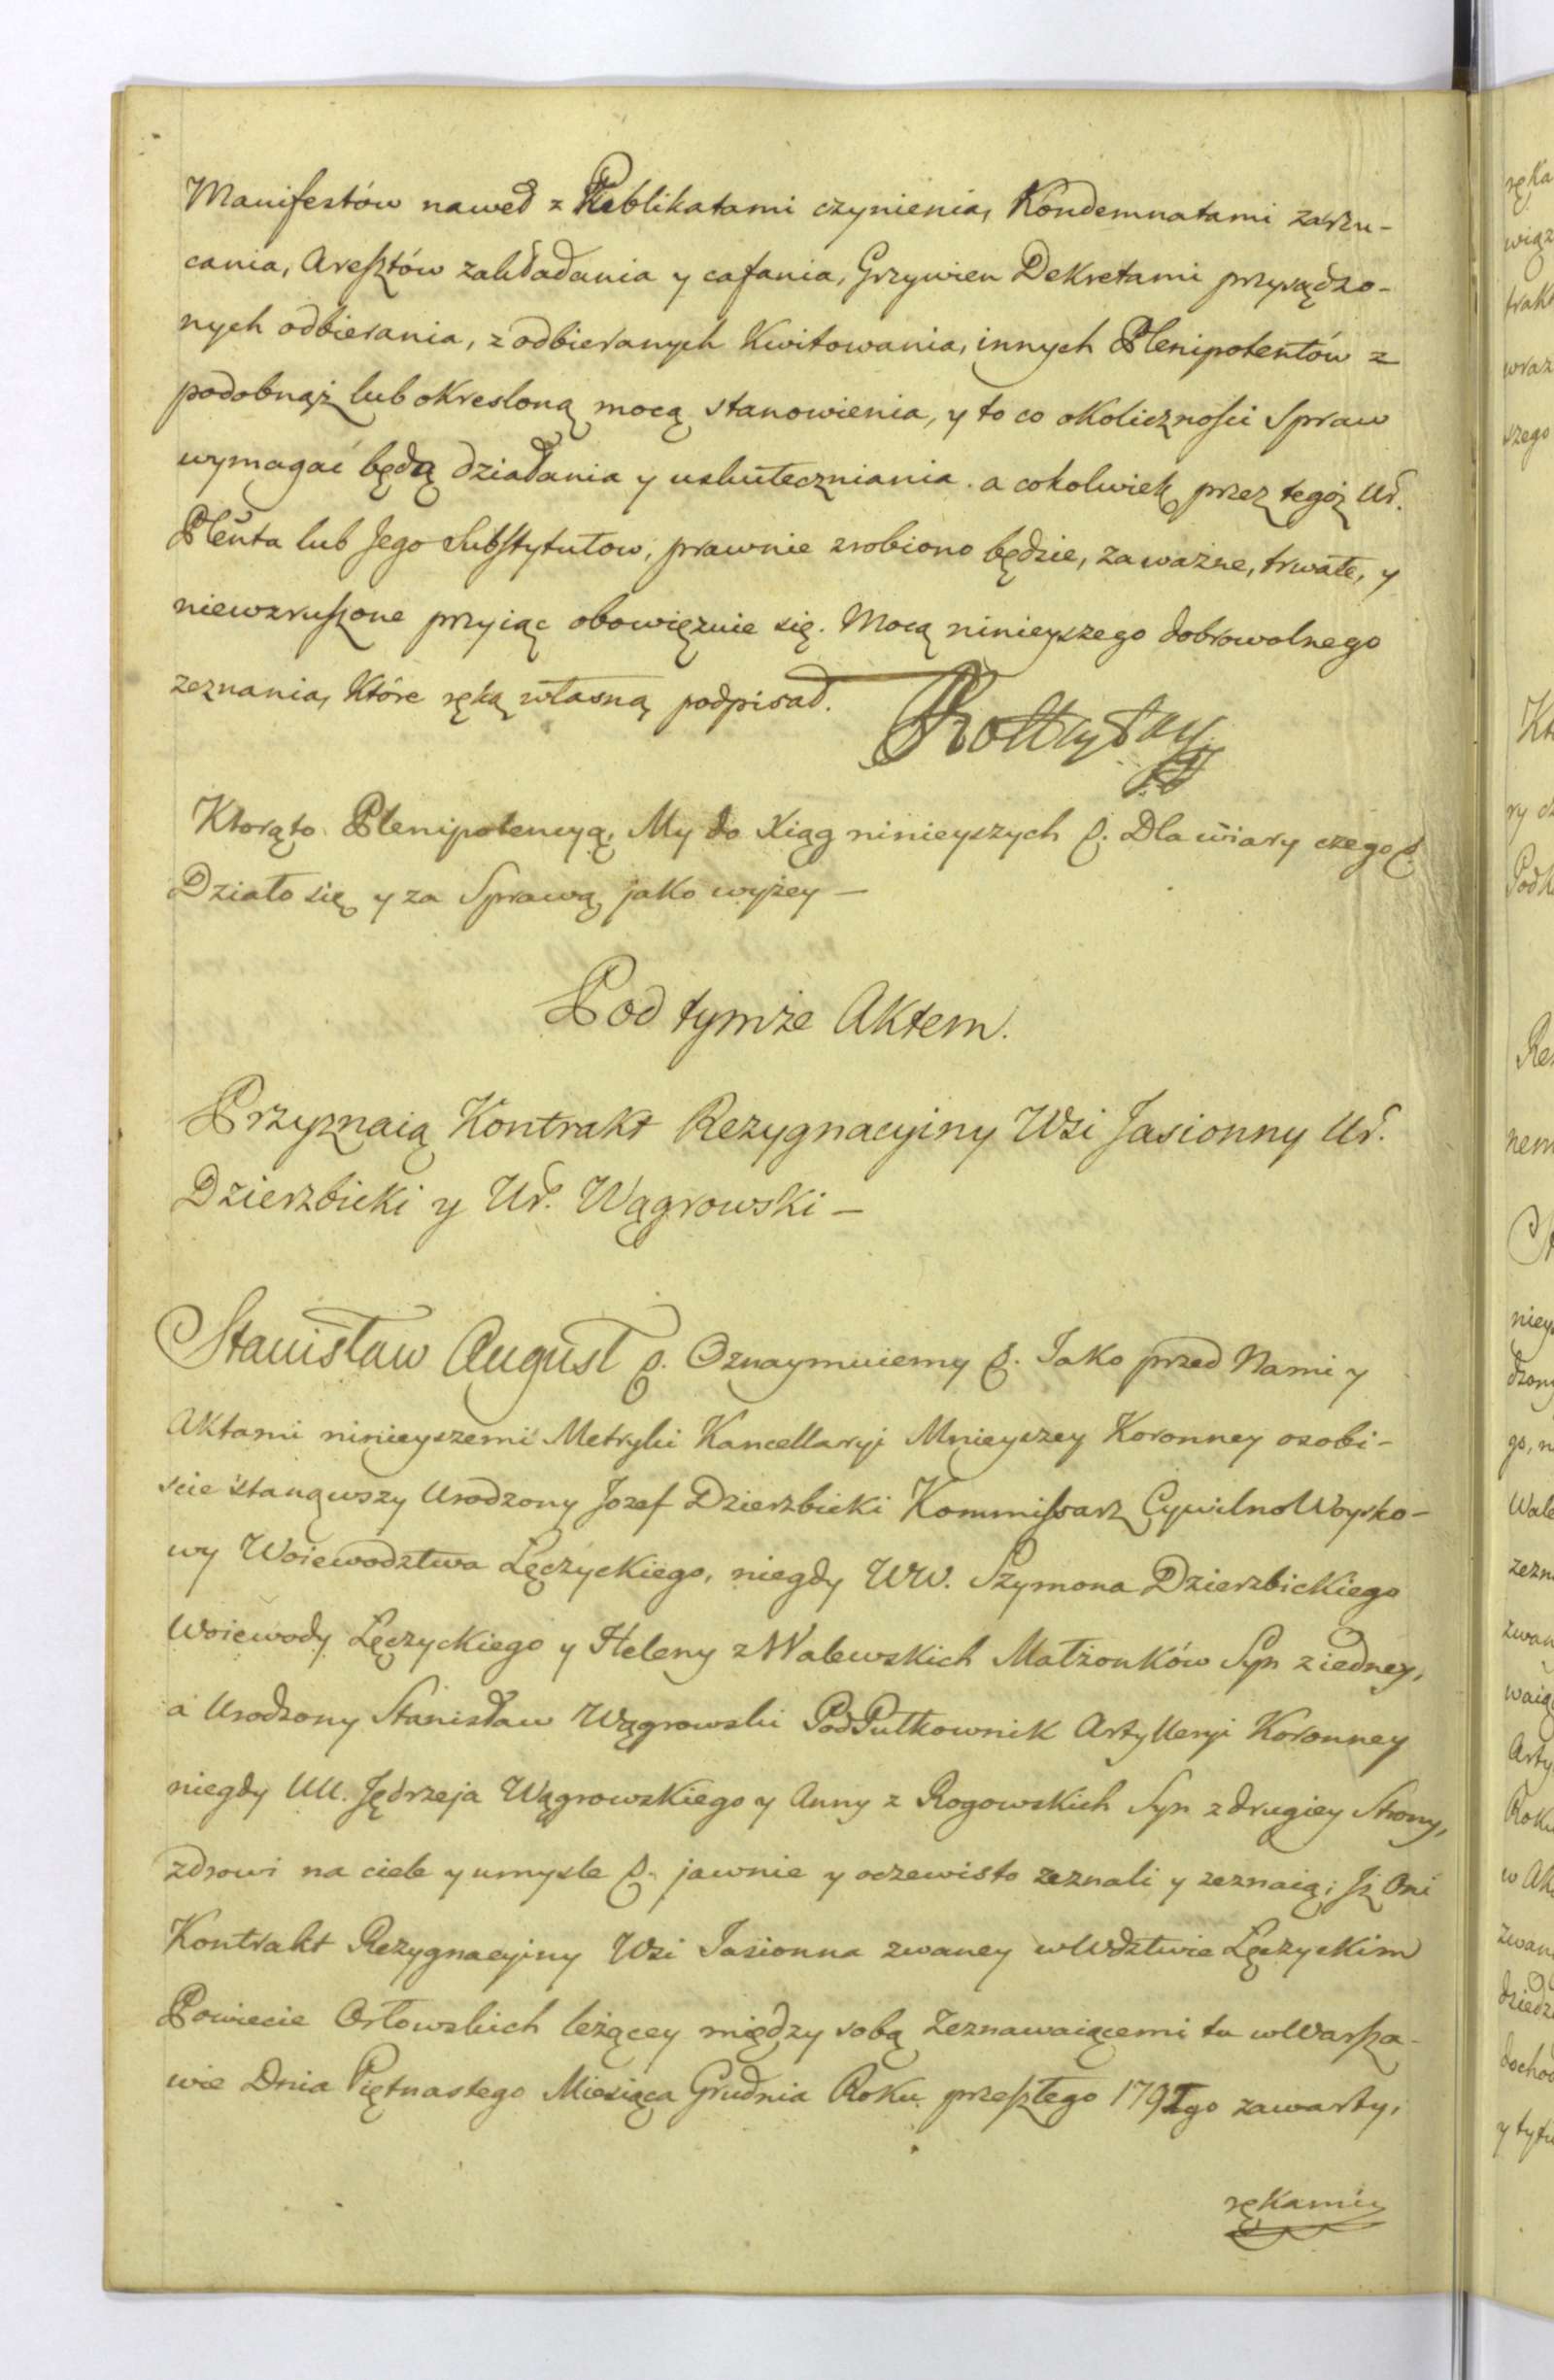 Manifestów naweł z Reblikatami czynienia, Kondemnatami zarzu-
cania, Aresztów zakładania y cafania, Grzywien Dekretami przysądzo-
nych odbierania, z odbieranych Kwitowania, innych Plenipotentów z
podobnąż lub okresloną mocą stanowienia, y to co okoliczności Spraw
wymagać będą działania y uskuteczniania. a cokolwiek przez tegoż Ur.
Plēnta lub Jego Substytutow, prawnie zrobiono będzie, za ważne, trwałe, y
niewzruszone przyiąc obowięzuie się. Mocą ninieyszego dobrowolnego
zeznania, Które ręką własną podpisał.
Ktorąto Plenipotencyą, My do Xiąg ninieyszych p. Dla wiary czego p.
Działo się y za Sprawą jako wyżey —
Pod tymże Aktem.
Przyznaią Kontrakt Rezygnacyiny Wsi Jasionny Ur.
Dzierzbicki y Ur. Wągrowski —
Stanisław August p. Oznaymuiemy p. Jako przed Nami y
Aktami ninieyszemi Metryki Kancellaryi Mnieyszey Koronney osobi-
scie stanąwszy Urodzony Jozef Dzierzbicki Kommissarz Cywilno Woysko-
wy Woiewodztwa Łęczyckiego, niegdy WW. Szymona Dzierzbickiego
Woiewody Łęczyckiego y Heleny z Walewskich Małżonków Syn z iedney,
a Urodzony Stanisław Wągrowski PodPułkownik Artylleryi Koronney
niegdy UU. Jędrzeja Wągrowskiego y Anny z Rogowskich Syn z drugiey Strony,
zdrowi na ciele y umysle p. jawnie y oczewisto zeznali y zeznaią; Jż Oni
Kontrakt Rezygnacyiny Wsi Jasionna zwaney w Wdztwie Łęczyckim
Powiecie Orłowskich leżącey między sobą Zeznawaiącemi tu w Warsza-
wie Dnia Piętnastego Miesiąca Grudnia Roku przeszłego 1791go zawarty,
rękami